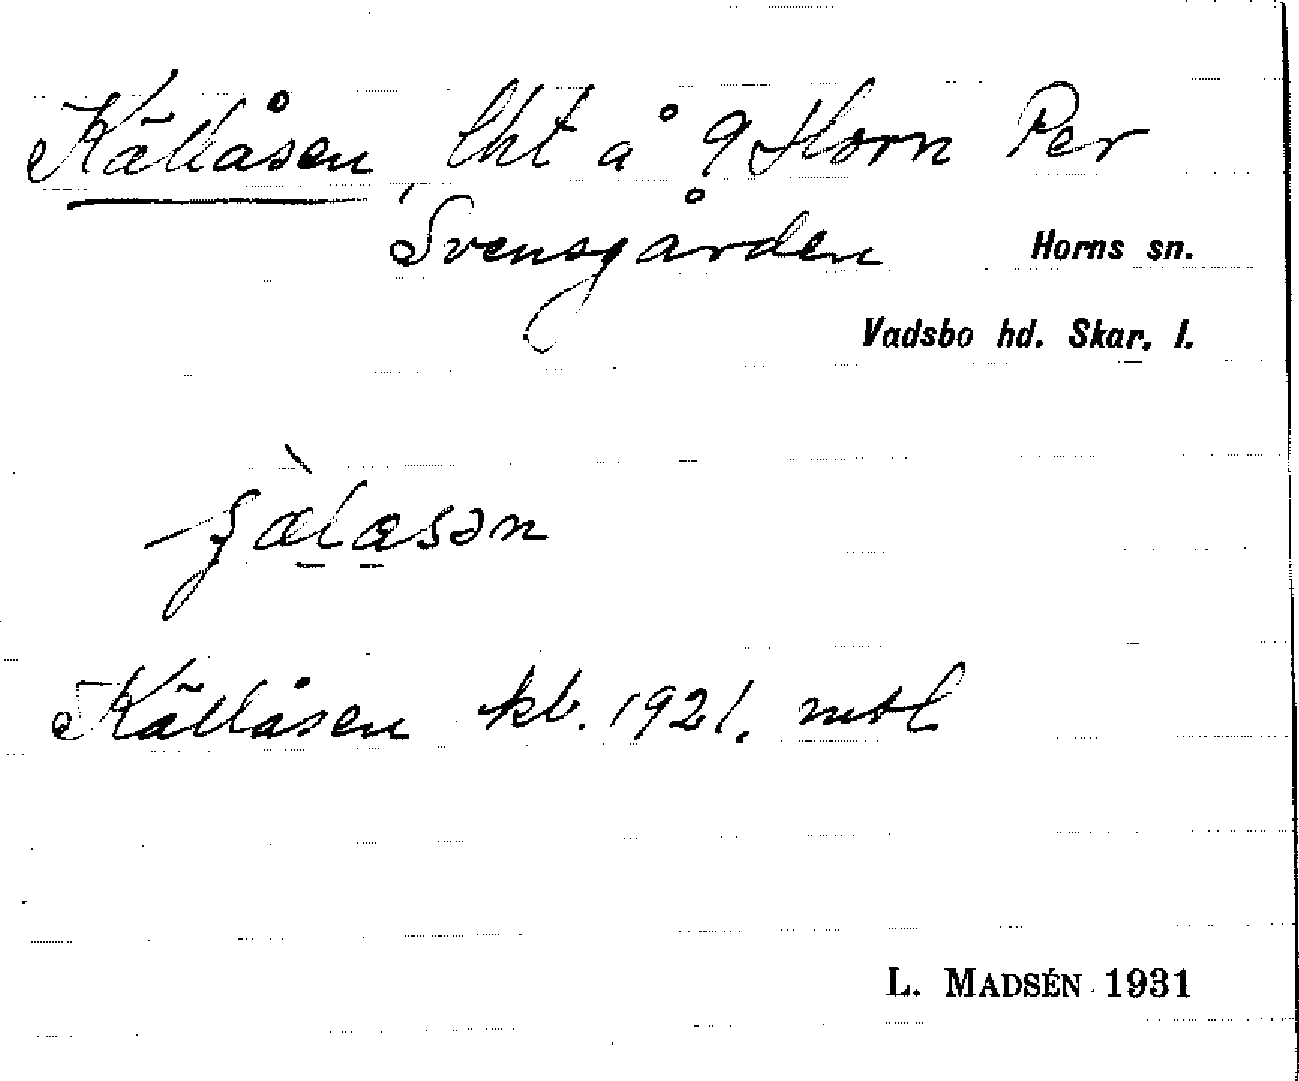 Källåsen, lht å 9 Horn Per
Svensgården
Horns sn.
Vadsbo hd. Skar. l.
Källåsen kb. 1921.
L. MADSÉN 1931